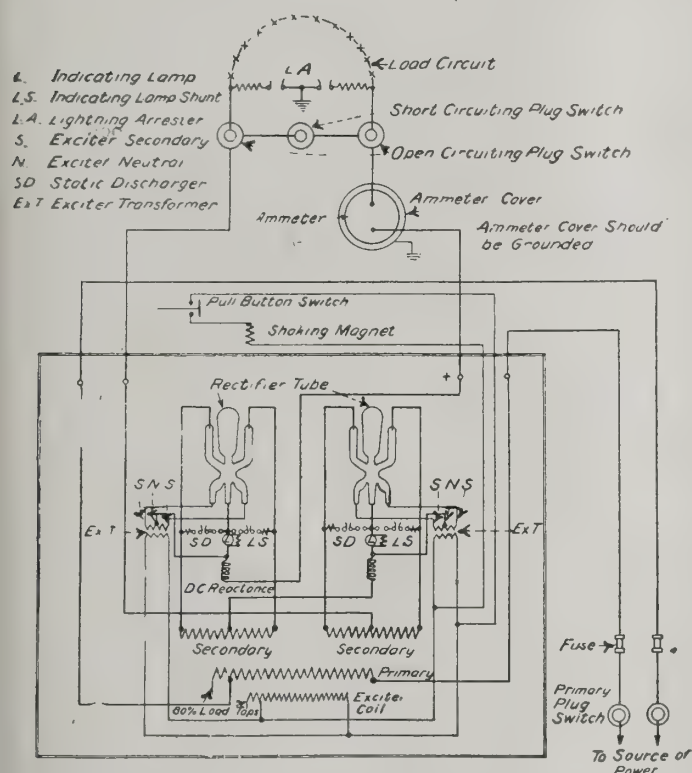 L A
Load Circuit
L. Indicating Lamp
L.S. Indicating Lamp Shunt
L.A. Lightning Arrester
S. Exciter Secondary
N. Exciter Neutral
SD Static Discharger
Ex T Exciter Transformer
Short Circuiting Plug Switch
Open Circuiting Plug Switch
Ammeter
Ammeter Cover
Ammeter Cover Should
be Grounded
Pull Button Switch
Shaking Magnet
Rectifier Tube
+
S N S
S N S
Ex T
SD
L
LS
SD
L
LS
Ex T
DC Reactance
Secondary
Secondary
Primary
80% Load Taps
Exciter
Coil
Fuse
Primary
Plug
Switch
To Source of
Power